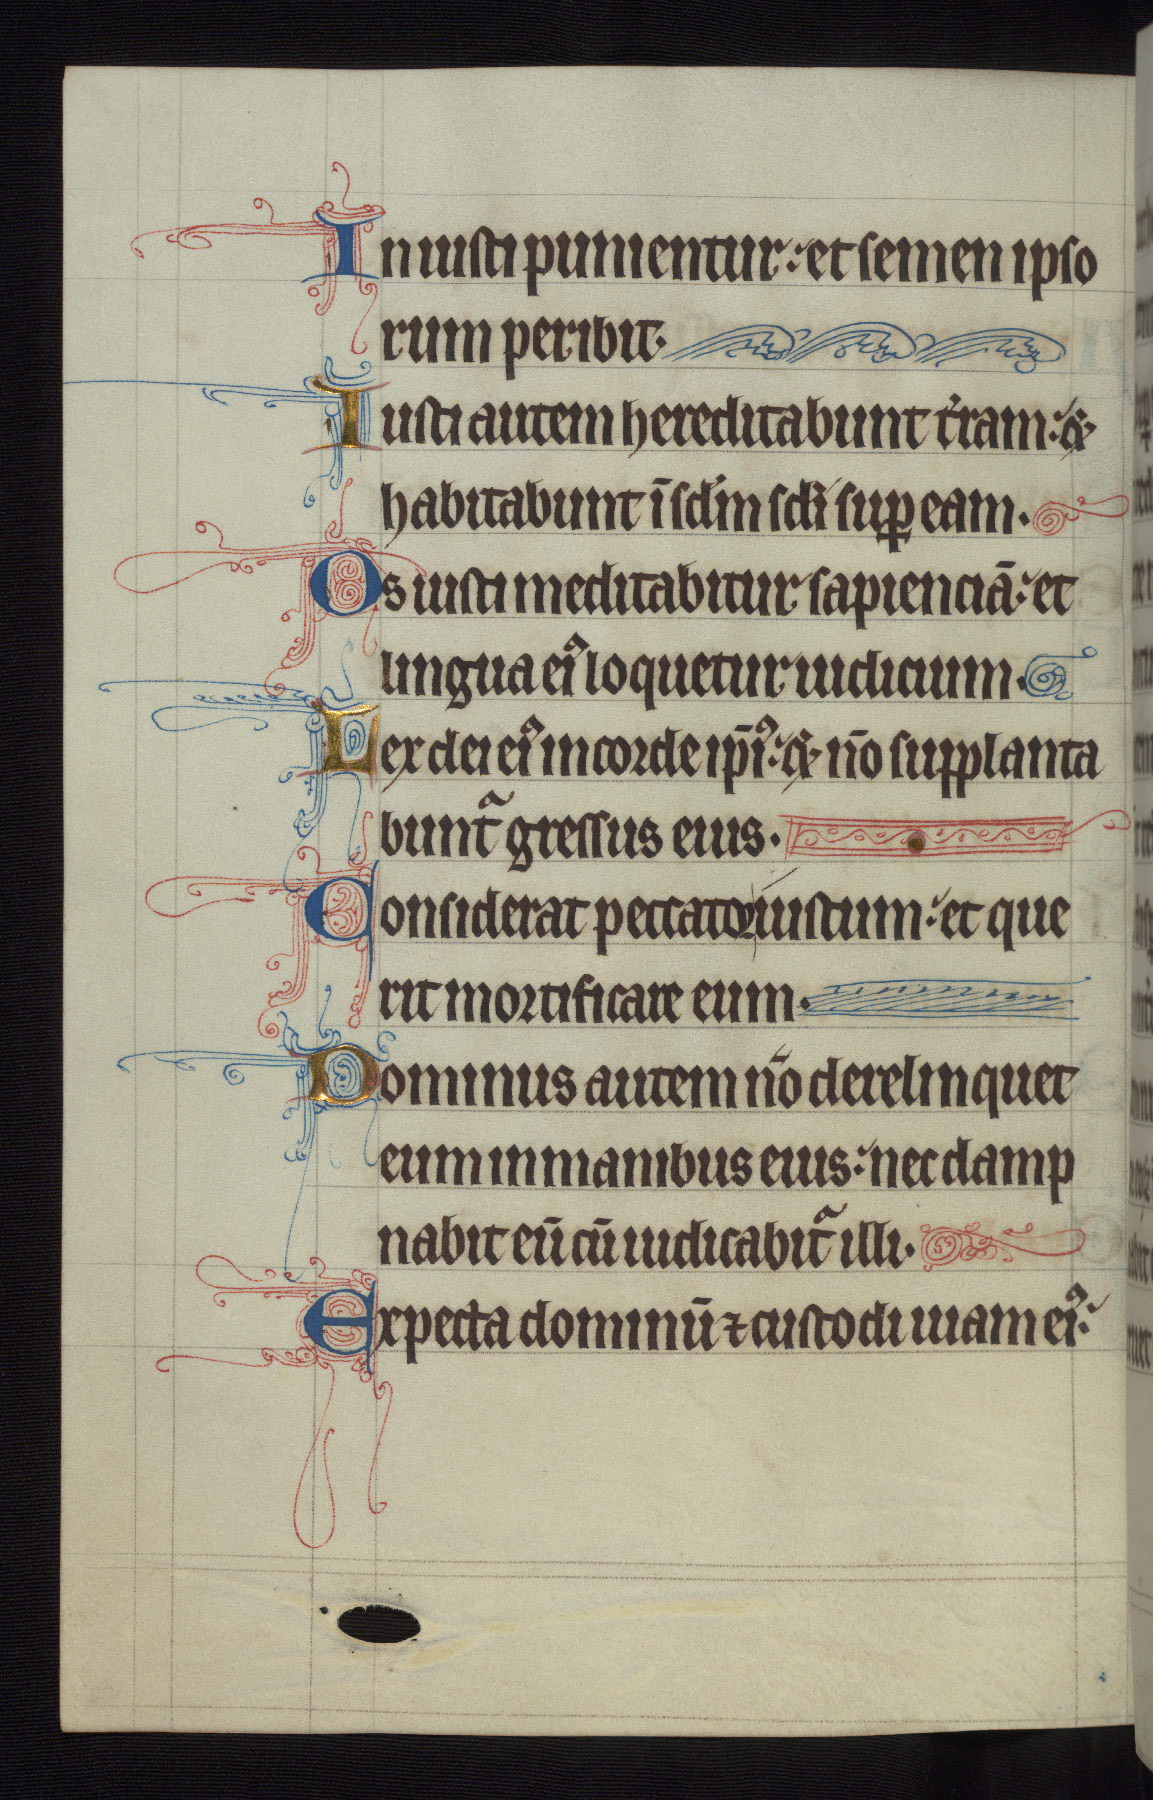 Iniusti punientur: et semen ipso
rum peribit.
Iusti autem hereditabunt t̉ram: &
habitabunt ī sclm̄ scli sup̱ eam.
Os iusti meditabitur sapienciā: et
lingua eiꝰ loquetur iudicium.
Lex dei eiꝰ in corde ip̄iꝰ: & nō supplanta
buntᷓ gressus eius.
Considerat peccator iustum: et que
rit mortificare eum.
Dominus autem nō derelinquet
eum in manibus eius: nec damp
nabit eū cū iudicabitᷓ illi.
Expecta dominū ⁊ custodi uiam eiꝰ: